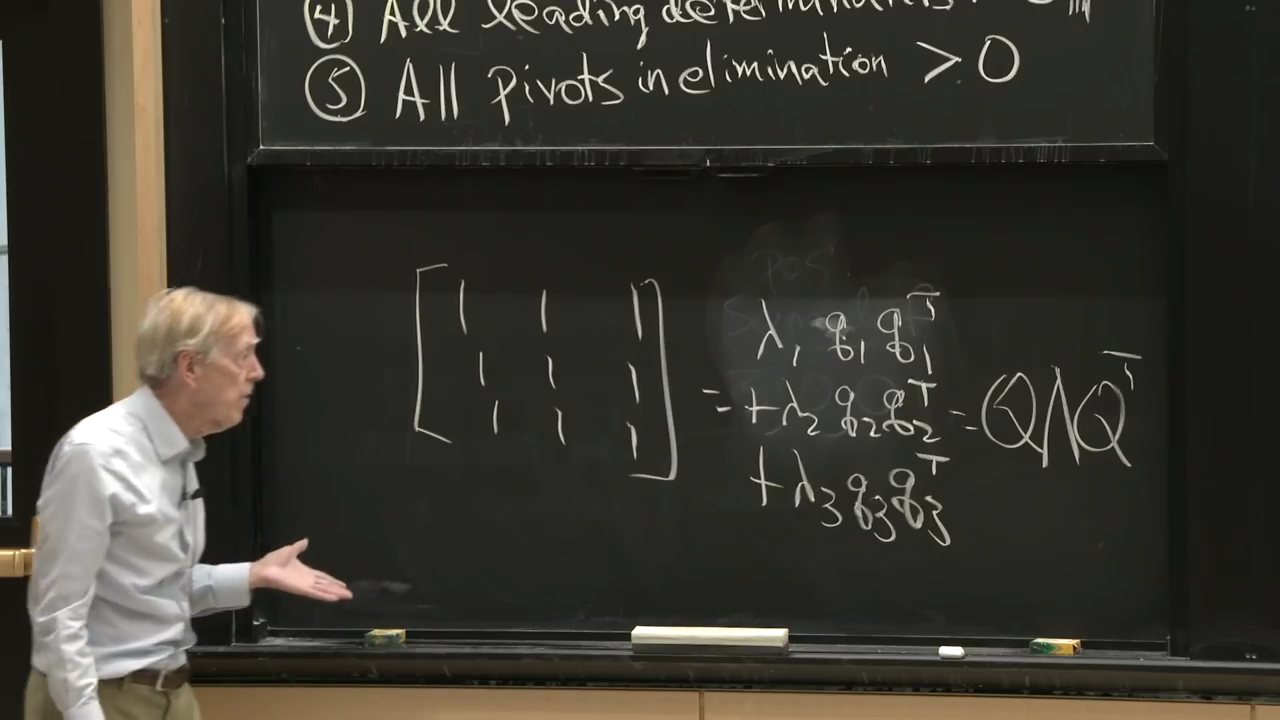 ④ All leading determinants > 0
⑤ All pivots in elimination > 0
[ 1 1 1
1 1 1
1 1 1 ]
= λ₁ q₁ q₁ᵀ
+ λ₂ q₂ q₂ᵀ
+ λ₃ q₃ q₃ᵀ
= QΛQᵀ